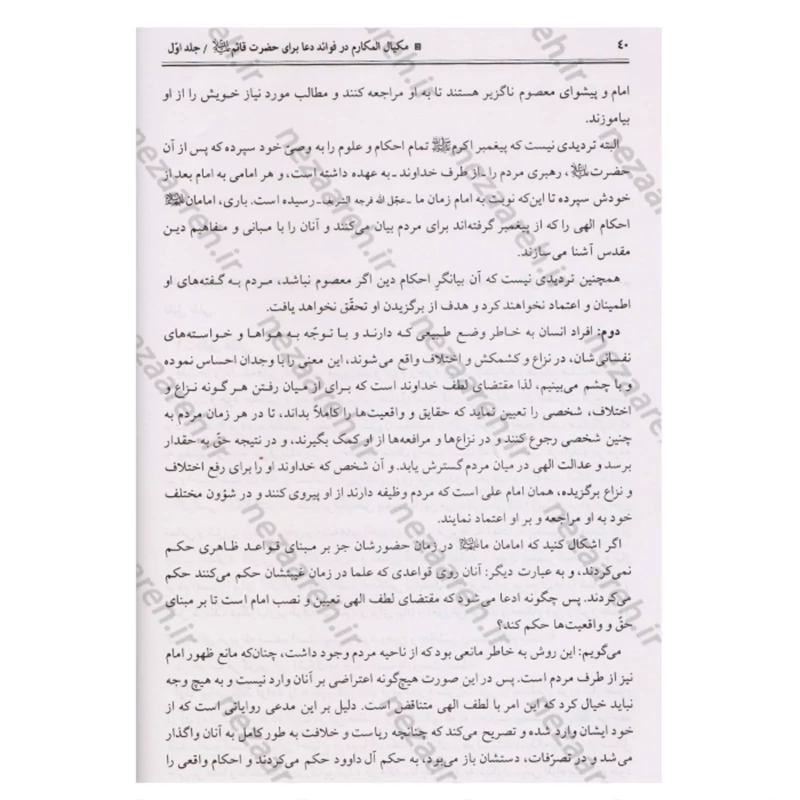 ۴۰ مکیال المکارم در فوائد دعا برای حضرت قائم / جلد اوّل
امام و پیشوای معصوم ناگزیر هستند تا به او مراجعه کنند و مطالب مورد نیاز خویش را از او
بیاموزند.
البته تردیدی نیست که پیغمبر اکرم تمام احکام و علوم را به وصیّ خود سپرده که پس از آن
حضرت، رهبری مردم را ـ از طرف خداوند ـ به عهده داشته است، و هر امامی به امام بعد از
خودش سپرده تا این‌که نوبت به امام زمان ما ـ عجّل الله فرجه الشریف ـ رسیده است. باری، امامان
احکام الهی را که از پیغمبر گرفته‌اند برای مردم بیان می‌کنند و آنان را با مبانی و مفاهیم دین
مقدس آشنا می‌سازند.
همچنین تردیدی نیست که آن بیانگرِ احکام دین اگر معصوم نباشد، مردم به گفته‌های او
اطمینان و اعتماد نخواهند کرد و هدف از برگزیدن او تحقّق نخواهد یافت.
دوم: افراد انسان به خاطر وضع طبیعی که دارند و با توجّه به هواها و خواسته‌های
نفسانی‌شان، در نزاع و کشمکش و اختلاف واقع می‌شوند، این معنی را با وجدان احساس نموده
و با چشم می‌بینیم، لذا مقتضای لطف خداوند است که برای از میان رفتن هر گونه نزاع و
اختلاف، شخصی را تعیین نماید که حقایق و واقعیت‌ها را کاملاً بداند، تا در هر زمان مردم به
چنین شخصی رجوع کنند و در نزاع‌ها و مرافعه‌ها از او کمک بگیرند، و در نتیجه حقّ به حقدار
برسد و عدالت الهی در میان مردم گسترش یابد. و آن شخص که خداوند او را برای رفع اختلاف
و نزاع برگزیده، همان امام علی است که مردم وظیفه دارند از او پیروی کنند و در شؤون مختلف
خود به او مراجعه و بر او اعتماد نمایند.
اگر اشکال کنید که امامان ما در زمان حضورشان جز بر مبنای قواعد ظاهری حکم
نمی‌کردند، و به عبارت دیگر: آنان روی قواعدی که علما در زمان غیبتشان حکم می‌کنند حکم
می‌کردند. پس چگونه ادعا می‌شود که مقتضای لطف الهی تعیین و نصب امام است تا بر مبنای
حقّ و واقعیت‌ها حکم کند؟
می‌گویم: این روش به خاطر مانعی بود که از ناحیه مردم وجود داشت، چنان‌که مانع ظهور امام
نیز از طرف مردم است. پس در این صورت هیچ‌گونه اعتراضی بر آنان وارد نیست و به هیچ وجه
نباید خیال کرد که این امر با لطف الهی متناقض است. دلیل بر این مدعی روایاتی است که از
خود ایشان وارد شده و تصریح می‌کند که چنانچه ریاست و خلافت به طور کامل به آنان واگذار
می‌شد و در تصرّفات، دستشان باز می‌بود، به حکم آل داوود حکم می‌کردند و احکام واقعی را
nezaareh.ir
nezaareh.ir
nezaareh.ir
nezaareh.ir
nezaareh.ir
nezaareh.ir
nezaareh.ir
nezaareh.ir